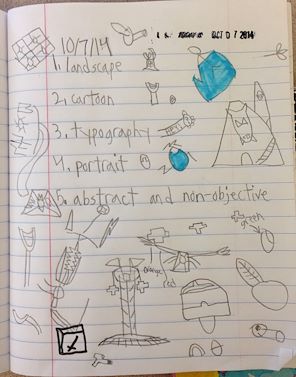 OCT 07 2014
10/7/14
1. landscape
2. cartoon
3. typography
4. portrait
5. abstract and non-objective
green
orange
red